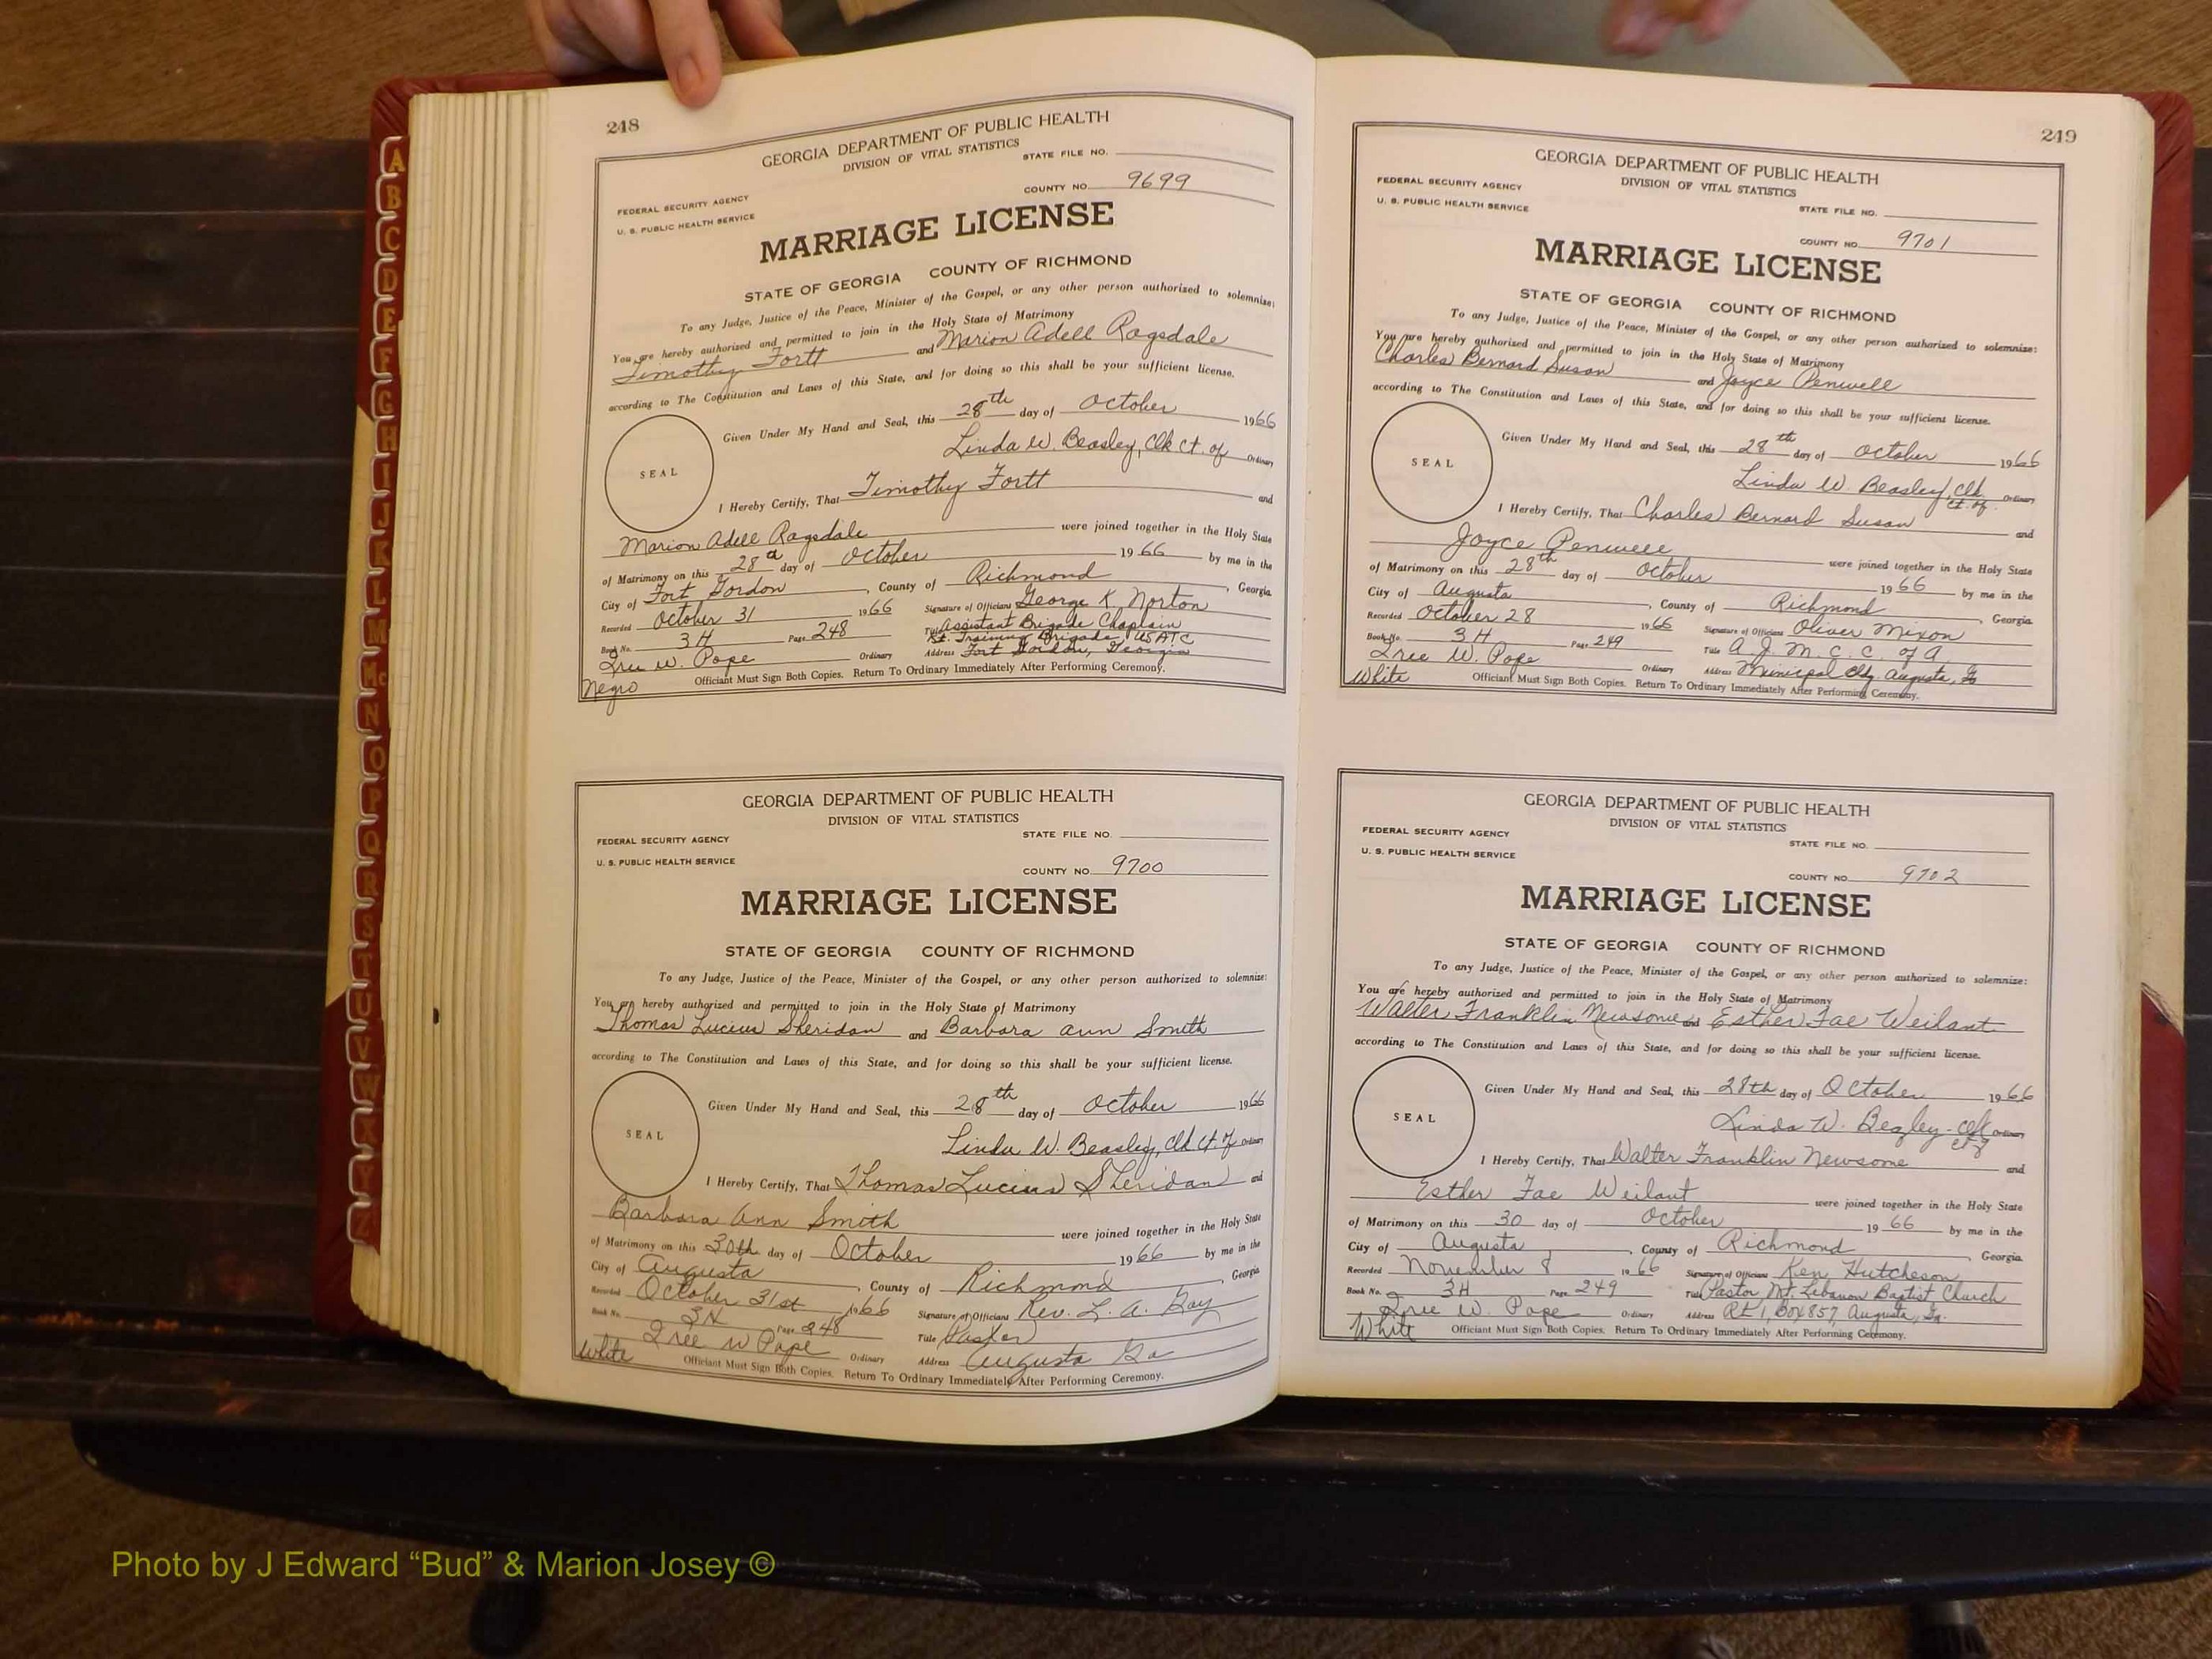 248
GEORGIA DEPARTMENT OF PUBLIC HEALTH
DIVISION OF VITAL STATISTICS
STATE FILE NO.
FEDERAL SECURITY AGENCY
COUNTY NO. 9699
U. S. PUBLIC HEALTH SERVICE
MARRIAGE LICENSE
STATE OF GEORGIA COUNTY OF RICHMOND
To any Judge, Justice of the Peace, Minister of the Gospel, or any other person authorized to solemnize:
You are hereby authorized and permitted to join in the Holy State of Matrimony
Timothy Fortt and Marion Adell Ragsdale
according to The Constitution and Laws of this State, and for doing so this shall be your sufficient license.
Given Under My Hand and Seal, this 28th day of October 1966
SEAL
Linda W. Beasley, Clk Ct. of Ordinary
I Hereby Certify, That Timothy Fortt and
Marion Adell Ragsdale were joined together in the Holy State
of Matrimony on this 28 day of October 1966 by me in the
City of Fort Gordon, County of Richmond, Georgia.
Recorded October 31 1966 Signature of Officiant George K. Norton
Book No. 3H Page 248 Title Assistant Brigade Chaplain
Training Brigade, USATC
Pope Ordinary Address Fort Gordon, Georgia
Negro Officiant Must Sign Both Copies. Return To Ordinary Immediately After Performing Ceremony.
GEORGIA DEPARTMENT OF PUBLIC HEALTH
DIVISION OF VITAL STATISTICS
FEDERAL SECURITY AGENCY
STATE FILE NO.
U. S. PUBLIC HEALTH SERVICE
COUNTY NO. 9700
MARRIAGE LICENSE
STATE OF GEORGIA COUNTY OF RICHMOND
To any Judge, Justice of the Peace, Minister of the Gospel, or any other person authorized to solemnize:
You are hereby authorized and permitted to join in the Holy State of Matrimony
Thomas Lucius Sheridan and Barbara Ann Smith
according to The Constitution and Laws of this State, and for doing so this shall be your sufficient license.
Given Under My Hand and Seal, this 28th day of October 1966
SEAL
Linda W. Beasley, Clk Ct. of Ordinary
I Hereby Certify, That Thomas Lucius Sheridan and
Barbara Ann Smith were joined together in the Holy State
of Matrimony on this 30th day of October 1966 by me in the
City of Augusta, County of Richmond, Georgia
Recorded October 31st 1966 Signature of Officiant Rev. L. A. Gay
Book No. 3H Page 248 Title Pastor
W Pope Ordinary Address Augusta Ga
White Officiant Must Sign Both Copies. Return To Ordinary Immediately After Performing Ceremony.
249
GEORGIA DEPARTMENT OF PUBLIC HEALTH
DIVISION OF VITAL STATISTICS
FEDERAL SECURITY AGENCY
STATE FILE NO.
U. S. PUBLIC HEALTH SERVICE
COUNTY NO. 9701
MARRIAGE LICENSE
STATE OF GEORGIA COUNTY OF RICHMOND
To any Judge, Justice of the Peace, Minister of the Gospel, or any other person authorized to solemnize:
You are hereby authorized and permitted to join in the Holy State of Matrimony
Charles Bernard Susan and Joyce Penwell
according to The Constitution and Laws of this State, and for doing so this shall be your sufficient license.
Given Under My Hand and Seal, this 28th day of October 1966
SEAL
Linda W. Beasley, Clk. Ct. of. Ordinary
I Hereby Certify, That Charles Bernard Susan and
Joyce Penwell were joined together in the Holy State
of Matrimony on this 28th day of October 1966 by me in the
City of Augusta, County of Richmond, Georgia.
Recorded October 28 1966 Signature of Officiant Oliver Mixon
Book No. 3H Page 249 Title A. J. M. C. C. of A
W. Pope Ordinary Address Municipal Bldg. Augusta, Ga
White Officiant Must Sign Both Copies. Return To Ordinary Immediately After Performing Ceremony.
GEORGIA DEPARTMENT OF PUBLIC HEALTH
DIVISION OF VITAL STATISTICS
FEDERAL SECURITY AGENCY
STATE FILE NO.
U. S. PUBLIC HEALTH SERVICE
COUNTY NO. 9702
MARRIAGE LICENSE
STATE OF GEORGIA COUNTY OF RICHMOND
To any Judge, Justice of the Peace, Minister of the Gospel, or any other person authorized to solemnize:
You are hereby authorized and permitted to join in the Holy State of Matrimony
Walter Franklin Newsome and Esther Fae Weilant
according to The Constitution and Laws of this State, and for doing so this shall be your sufficient license.
Given Under My Hand and Seal, this 28th day of October 1966
SEAL
Linda W. Beasley - Clk Ct of Ordinary
I Hereby Certify, That Walter Franklin Newsome and
Esther Fae Weilant were joined together in the Holy State
of Matrimony on this 30 day of October 1966 by me in the
City of Augusta, County of Richmond, Georgia.
Recorded November 8 1966 Signature of Officiant Ken Hutcheson
Book No. 3H Page 249 Title Pastor Mt. Lebanon Baptist Church
W. Pope Ordinary Address Rt 1, Box 857, Augusta, Ga.
White Officiant Must Sign Both Copies. Return To Ordinary Immediately After Performing Ceremony.
A
B
C
D
E
F
G
H
I
J
K
L
M
Mc
N
O
P
Q
R
S
T
U
V
W
X
Y
Z
Photo by J Edward “Bud” & Marion Josey ©